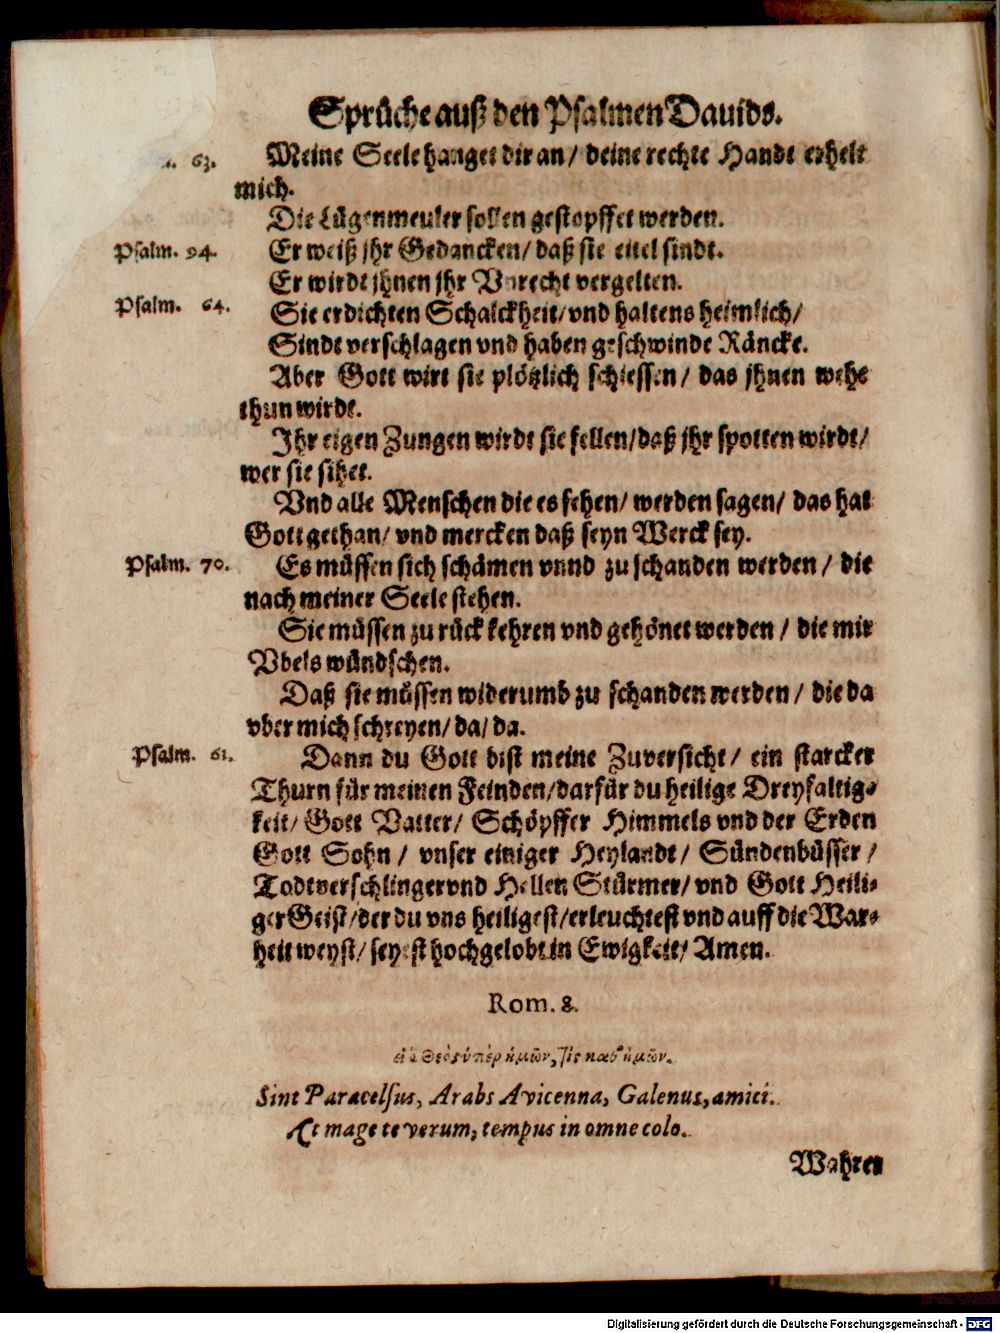 Sprüche auß den Psalmen Dauids.
63. Meine Seele hanget dir an/ deine rechte Handt erhelt
mich.
Die Lügenmeuler sollen gestopffet werden.
Psalm. 94. Er weiß jhr Gedancken/ daß sie eitel sindt.
Er wirdt jhnen jhr Vnrecht vergelten.
Psalm. 64. Sie erdichten Schalckheit/ vnd haltens heimlich/
Sindt verschlagen vnd haben geschwinde Räncke.
Aber Gott wirt sie plötzlich schiessen/ das jhnen wehe
thun wirdt.
Jhr eigen Zungen wirdt sie fellen/ daß jhr spotten wirdt/
wer sie sihet.
Vnd alle Menschen die es sehen/ werden sagen/ das hat
Gott gethan/ vnd mercken daß seyn Werck sey.
Psalm. 70. Es müssen sich schämen vnnd zu schanden werden/ die
nach meiner Seele stehen.
Sie müssen zu rück kehren vnd gehönet werden/ die mir
Vbels wündschen.
Daß sie müssen widerumb zu schanden werden/ die da
vber mich schreyen/ da/ da.
Psalm. 61. Dann du Gott bist meine Zuversicht/ ein starcker
Thurn für meinen Feinden/ darfür du heilige Dreyfaltig-
keit/ Gott Vatter/ Schöpffer Himmels vnd der Erden
Gott Sohn/ vnser einiger Heylandt/ Sündenbüsser/
Todtverschlinger vnd Hellen Stürmer/ vnd Gott Heili-
ger Geist/ der du vns heiligest/ erleuchtest vnd auff die War-
heit weyst/ seyest hochgelobt in Ewigkeit/ Amen.
Rom. 8.
εἰ ὁ Θεὸς ὑπὲρ ἡμῶν, τίς καθ' ἡμῶν.
Sint Paracelsus, Arabs Avicenna, Galenus, amici.
At mage te verum, tempus in omne colo.
Wahrer
Digitalisierung gefördert durch die Deutsche Forschungsgemeinschaft - DFG